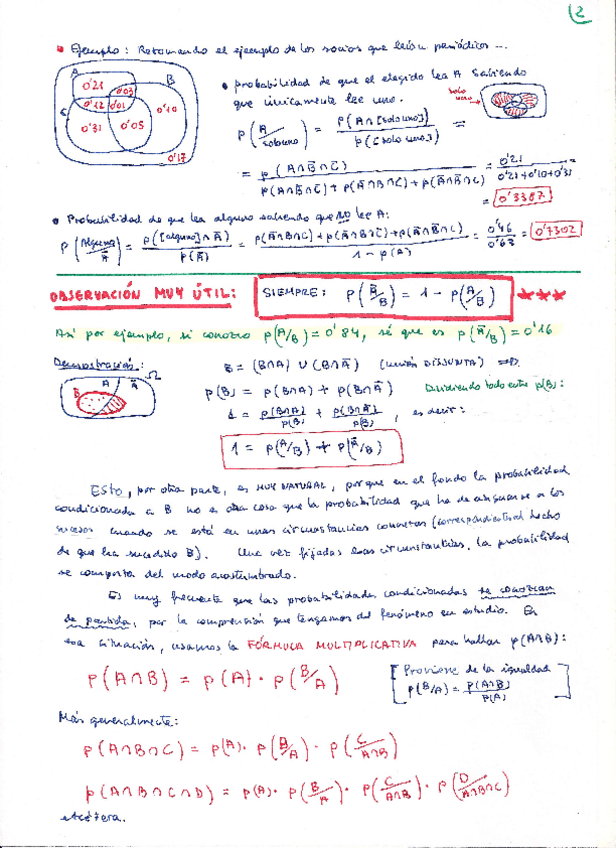 2
• Ejemplo: Retomando el ejemplo de los socios que leían periódicos ...
A B C
0'21 0'03 0'12 0'01 0'10 0'31 0'05 0'17
• probabilidad de que el elegido lea A sabiendo
que únicamente lee uno.
solo uno
p(A/solo uno) = p(A∩[solo uno]) / p([solo uno]) =
= p(A∩B̄∩C̄) / (p(A∩B̄∩C̄) + p(Ā∩B∩C̄) + p(Ā∩B̄∩C)) = 0'21 / (0'21+0'10+0'31) =
= 0'3387
• Probabilidad de que lea alguno sabiendo que no lee A:
p(Alguno/Ā) = p([alguno]∩Ā) / p(Ā) = (p(Ā∩B∩C̄)+p(Ā∩B̄∩C)+p(Ā∩B∩C)) / (1-p(A)) = 0'46 / 0'63 = 0'7302
OBSERVACIÓN MUY ÚTIL: SIEMPRE: p(Ā/B) = 1 - p(A/B) ***
Así por ejemplo, si conozco p(A/B)=0'84, sé que es p(Ā/B)=0'16
Demostración: B = (B∩A) ∪ (B∩Ā) (unión DISJUNTA) ⇒
A Ā Ω
B
p(B) = p(B∩A) + p(B∩Ā) Dividiendo todo entre p(B):
1 = p(B∩A)/p(B) + p(B∩Ā)/p(B) , es decir:
1 = p(A/B) + p(Ā/B)
Esto, por otra parte, es MUY NATURAL, porque en el fondo la probabilidad
condicionada a B no es otra cosa que la probabilidad que ha de asignarse a los
sucesos cuando se está en unas circunstancias concretas (correspondientes al hecho
de que ha sucedido B). Una vez fijadas esas circunstancias, la probabilidad
se comporta del modo acostumbrado.
Es muy frecuente que las probabilidades condicionadas se conozcan
de partida, por la comprensión que tengamos del fenómeno en estudio. En
esa situación, usamos la FÓRMULA MULTIPLICATIVA para hallar p(A∩B):
p(A∩B) = p(A) · p(B/A)
[Proviene de la igualdad
p(B/A) = p(A∩B)/p(A)]
Más generalmente:
p(A∩B∩C) = p(A) · p(B/A) · p(C/A∩B)
p(A∩B∩C∩D) = p(A) · p(B/A) · p(C/A∩B) · p(D/A∩B∩C)
etcétera.